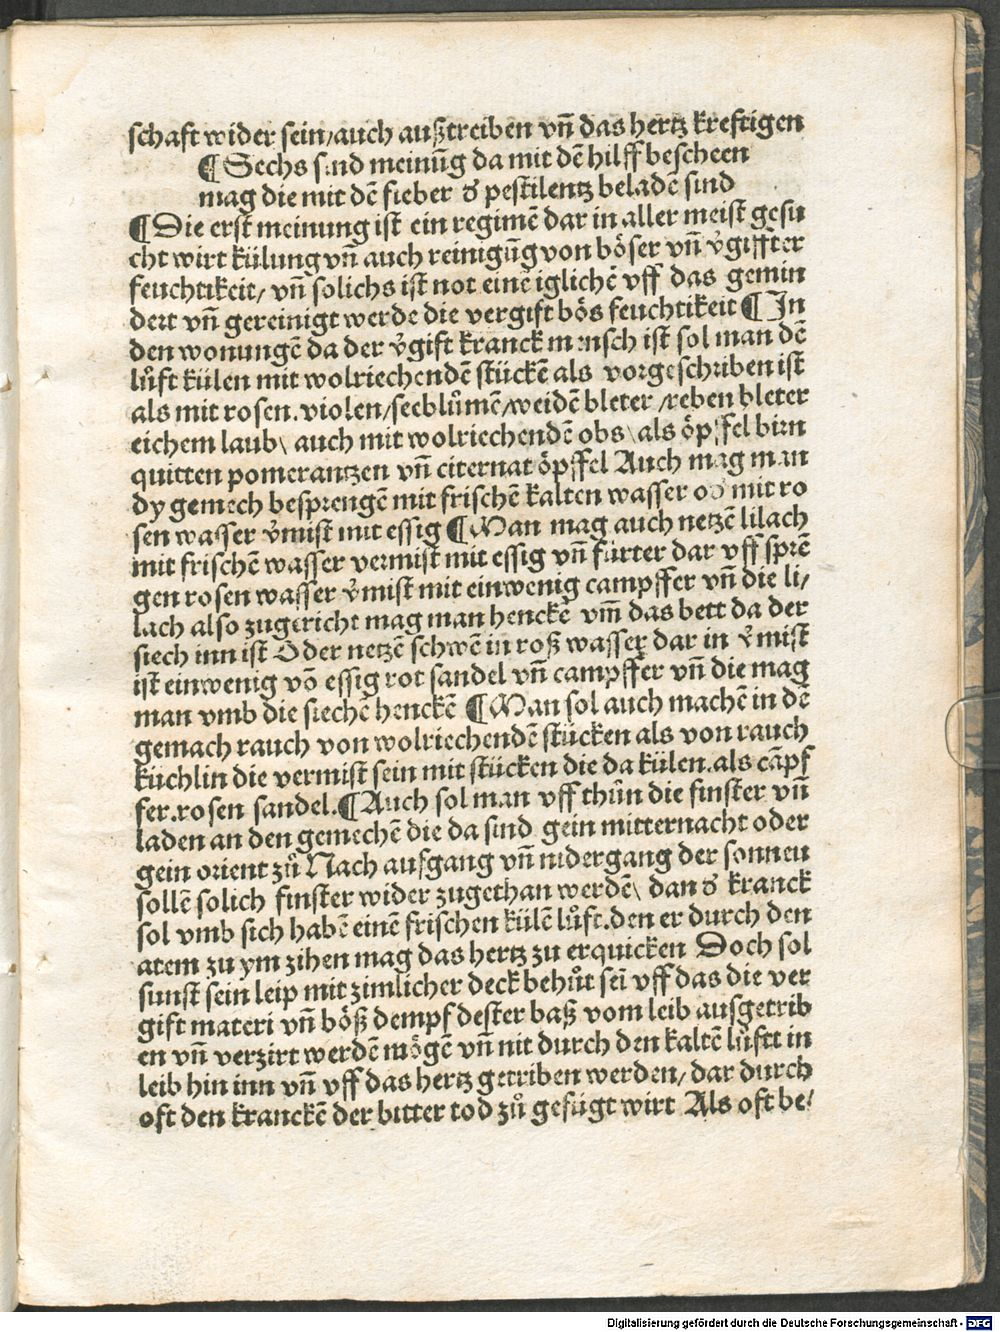 schaft wider sein/auch außtreiben vn̄ das hertz kreftigen
¶ Sechs sind meinūg da mit dē hilff bescheen
mag die mit dē fieber ď pestilentz beladē sind
¶ Die erst meinung ist ein regimē dar in aller meist gesu
cht wirt külung vn̄ auch reinigūg von böser vn̄ v̾giffter
feuchtikeit/ vn̄ solichs ist not einē iglichē vff das gemin
dert vn̄ gereinigt werde die vergift bös feuchtikeit ¶ In
den wonungē da der v̾gift kranck mensch ist sol man dē
lůft külen mit wolriechendē stückē als vorgeschriben ist
als mit rosen.violen/seeblůmē/weidē bleter/reben bleter
eichem laub\ auch mit wolriechendē obs\als öpffel birn
quitten pomerantzen vn̄ citernat öpffel Auch mag man
dy gemech besprengē mit frischē kalten wasser oď mit ro
sen wasser v̾mist mit essig ¶ Man mag auch netzē lilach
mit frischē wasser vermist mit essig vn̄ fürter dar vff sprē
gen rosen wasser v̾mist mit einwenig campffer vn̄ die li/
lach also zugericht mag man henckē vm̄ das bett da der
siech inn ist Oder netzē schwē in roß wasser dar in v̾mist
ist einwenig vō essig rot sandel vn̄ campffer vn̄ die mag
man vmb die siechē henckē ¶ Man sol auch machē in dē
gemach rauch von wolriechendē stücken als von rauch
küchlin die vermist sein mit stücken die da külen.als cāpf
fer.rosen sandel.¶ Auch sol man vff thůn die finster vn̄
laden an den gemechē die da sind gein mitternacht oder
gein orient zů Nach aufgang vn̄ nidergang der sonnen
sollē solich finster wider zugethan werdē\ dan ď kranck
sol vmb sich habē einē frischen külē lůft.den er durch den
atem zu ym zihen mag das hertz zu erquicken Doch sol
sunst sein leip mit zimlicher deck behůt sei̅ vff das die ver
gift materi vn̄ böß dempf dester baß vom leib ausgetrib
en vn̄ verzirt werdē mögē vn̄ nit durch den kaltē lůftt in
leib hin inn vn̄ vff das hertz getriben werden/ dar durch
oft den kranckē der bitter tod zů gefügt wirt Als oft be/
Digitalisierung gefördert durch die Deutsche Forschungsgemeinschaft - DFG